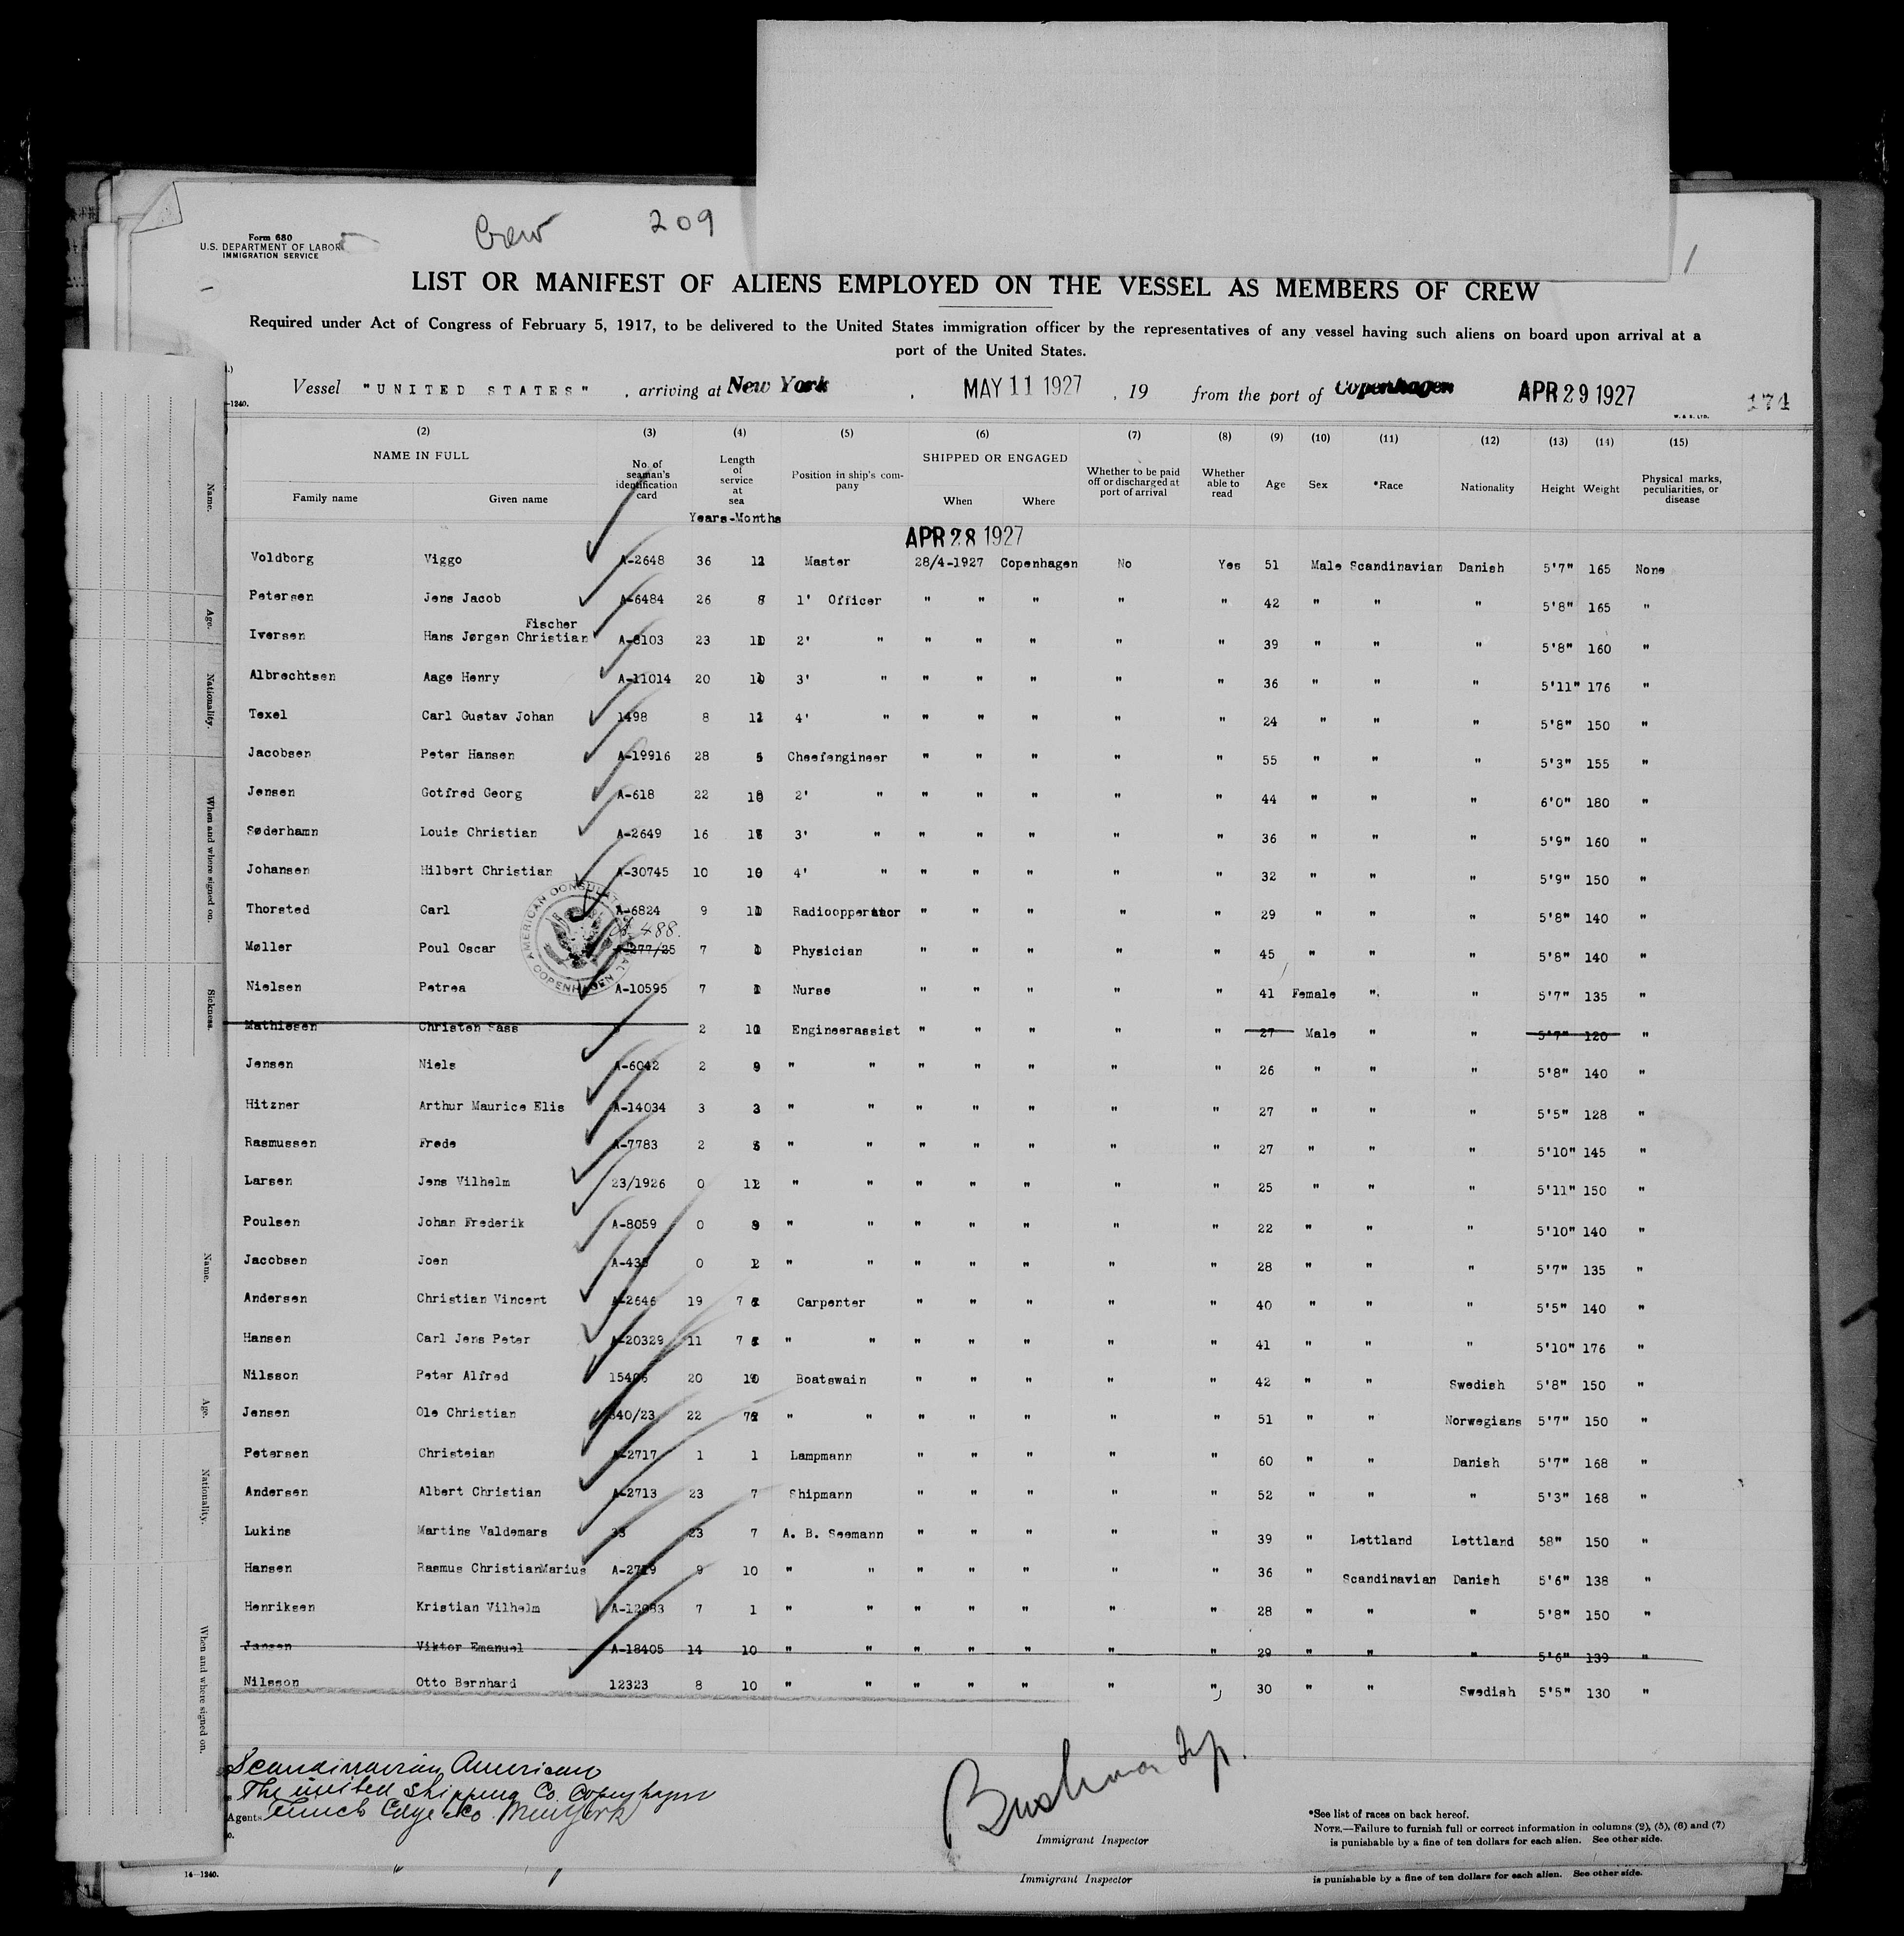 Crew 209
Form 680
U.S. DEPARTMENT OF LABOR
IMMIGRATION SERVICE
1
LIST OR MANIFEST OF ALIENS EMPLOYED ON THE VESSEL AS MEMBERS OF CREW
Required under Act of Congress of February 5, 1917, to be delivered to the United States immigration officer by the representatives of any vessel having such aliens on board upon arrival at a
port of the United States.
Vessel "UNITED STATES" , arriving at New York , MAY 11 1927 , 19 from the port of Copenhagen APR 29 1927 174
(2) (3) (4) (5) (6) (7) (8) (9) (10) (11) (12) (13) (14) (15)
NAME IN FULL
Family name Given name
No. of seaman's identification card
Length of service at sea
Years-Months
Position in ship's company
SHIPPED OR ENGAGED
When Where
Whether to be paid off or discharged at port of arrival
Whether able to read
Age Sex *Race Nationality Height Weight
Physical marks, peculiarities, or disease
APR 28 1927
Voldborg Viggo A-2648 36 Master 28/4-1927 Copenhagen No Yes 51 Male Scandinavian Danish 5'7" 165 None
Petersen Jens Jacob A-6484 26 1' Officer " " " " " 42 " " " 5'8" 165 "
Fischer
Iversen Hans Jørgen Christian A-8103 23 2' " " " " " " 39 " " " 5'8" 160 "
Albrechtsen Aage Henry A-11014 20 3' " " " " " " 36 " " " 5'11" 176 "
Texel Carl Gustav Johan 1498 8 4' " " " " " " 24 " " " 5'8" 150 "
Jacobsen Peter Hansen A-19916 28 Cheefengineer " " " " " 55 " " " 5'3" 155 "
Jensen Gotfred Georg A-618 22 2' " " " " " " 44 " " " 6'0" 180 "
Søderhamn Louis Christian A-2649 16 3' " " " " " " 36 " " " 5'9" 160 "
Johansen Hilbert Christian A-30745 10 4' " " " " " " 32 " " " 5'9" 150 "
Thorsted Carl A-6824 9 " " " " " 29 " " " 5'8" 140 "
488.
Møller Poul Oscar 277/25 7 Physician " " " " " 45 " " " 5'8" 140 "
AMERICAN CONSULATE GENERAL COPENHAGEN
Nielsen Petrea A-10595 7 Nurse " " " " " 41 Female " " 5'7" 135 "
Mathiesen Christen Sass 2 Engineerassist " " " " " 27 Male " " 5'7" 120 "
Jensen Niels A-6042 2 " " " " " " " 26 " " " 5'8" 140 "
Hitzner Arthur Maurice Elis A-14034 3 " " " " " " " 27 " " " 5'5" 128 "
Rasmussen Frede A-7783 2 " " " " " " " 27 " " " 5'10" 145 "
Larsen Jens Vilhelm 23/1926 0 " " " " " " " 25 " " " 5'11" 150 "
Poulsen Johan Frederik A-8059 0 " " " " " " " 22 " " " 5'10" 140 "
Jacobsen Joen 0 " " " " " " " 28 " " " 5'7" 135 "
Andersen Christian Vincent A-2646 19 7 Carpenter " " " " " 40 " " " 5'5" 140 "
Hansen Carl Jens Peter A-20329 11 7 " " " " " " " 41 " " " 5'10" 176 "
Nilsson Peter Alfred 20 Boatswain " " " " " 42 " " Swedish 5'8" 150 "
Jensen Ole Christian 22 " " " " " " " 51 " " Norwegians 5'7" 150 "
Petersen Christeian A-2717 1 1 Lampmann " " " " " 60 " " Danish 5'7" 168 "
Andersen Albert Christian A-2713 23 7 Shipmann " " " " " 52 " " " 5'3" 168 "
Lukins Martins Valdemars 33 23 7 A. B. Seemann " " " " " 39 " Lettland Lettland 58" 150 "
Hansen Rasmus ChristianMarius 9 10 " " " " " " " 36 " Scandinavian Danish 5'6" 138 "
Henriksen Kristian Vilhelm 7 1 " " " " " " " 28 " " " 5'8" 150 "
Jansen Viktor Emanuel A-18405 14 10 " " " " " " " 29 " " " 5'6" 139 "
Nilsson Otto Bernhard 12323 8 10 " " " " " " " 30 " " Swedish 5'5" 130 "
Scandinavian American
The united Shipping Co. Copenhagen
Agents Funch Edye &Co. New York
Immigrant Inspector
*See list of races on back hereof.
NOTE.—Failure to furnish full or correct information in columns (2), (5), (6) and (7)
is punishable by a fine of ten dollars for each alien. See other side.
14—1240.
Immigrant Inspector
is punishable by a fine of ten dollars for each alien. See other side.
Name.
Age.
Nationality.
When and where signed on.
Sickness.
Name.
Age.
Nationality.
When and where signed on.